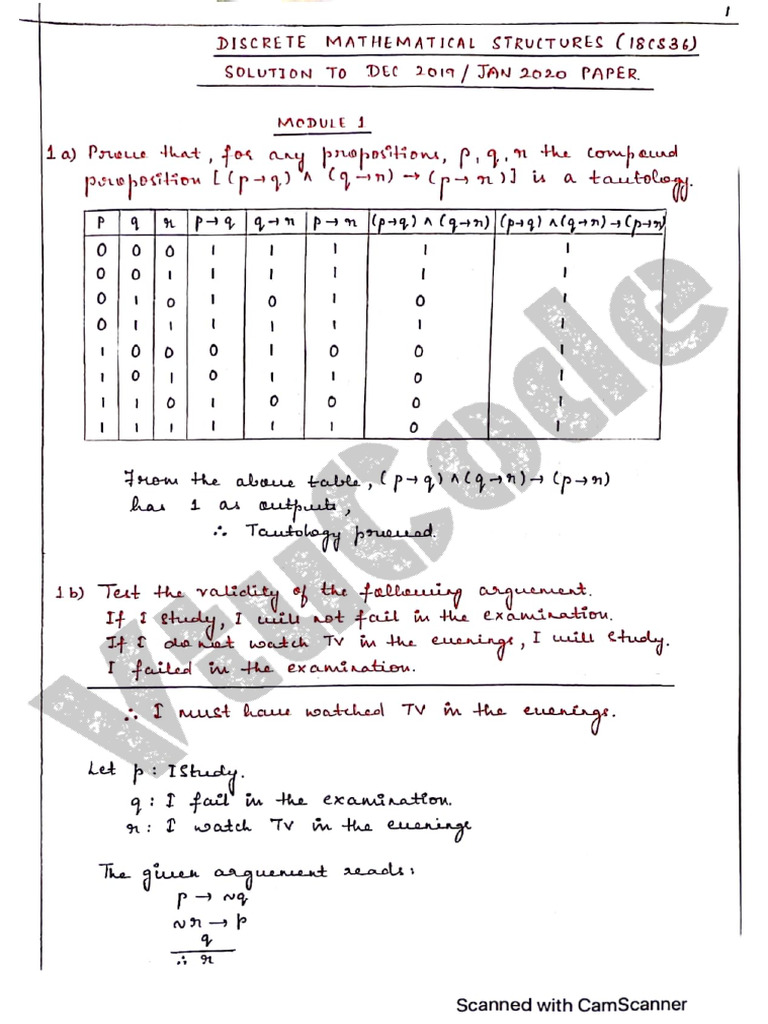 1
DISCRETE MATHEMATICAL STRUCTURES (18CS36)
SOLUTION TO DEC 2019 / JAN 2020 PAPER.
MODULE 1
1a) Prove that, for any propositions, p, q, r the compound
proposition [(p→q) ∧ (q→r) → (p→r)] is a tautology.
p q r p→q q→r p→r (p→q) ∧ (q→r) (p→q) ∧ (q→r) → (p→r)
0 0 0 1 1 1 1 1
0 0 1 1 1 1 1 1
0 1 0 1 0 1 0 1
0 1 1 1 1 1 1 1
1 0 0 0 1 0 0 1
1 0 1 0 1 1 0 1
1 1 0 1 0 0 0 1
1 1 1 1 1 1 0 1
From the above table, (p→q) ∧ (q→r) → (p→r)
has 1 as outputs,
∴ Tautology proved.
1b) Test the validity of the following arguement.
If I study, I will not fail in the examination.
If I do not watch TV in the evenings, I will study.
I failed in the examination.
∴ I must have watched TV in the evenings.
Let p: I Study.
q: I fail in the examination.
r: I watch TV in the evenings
The given arguement reads:
p → ~q
~r → p
q
∴ r
VtuCode
Scanned with CamScanner